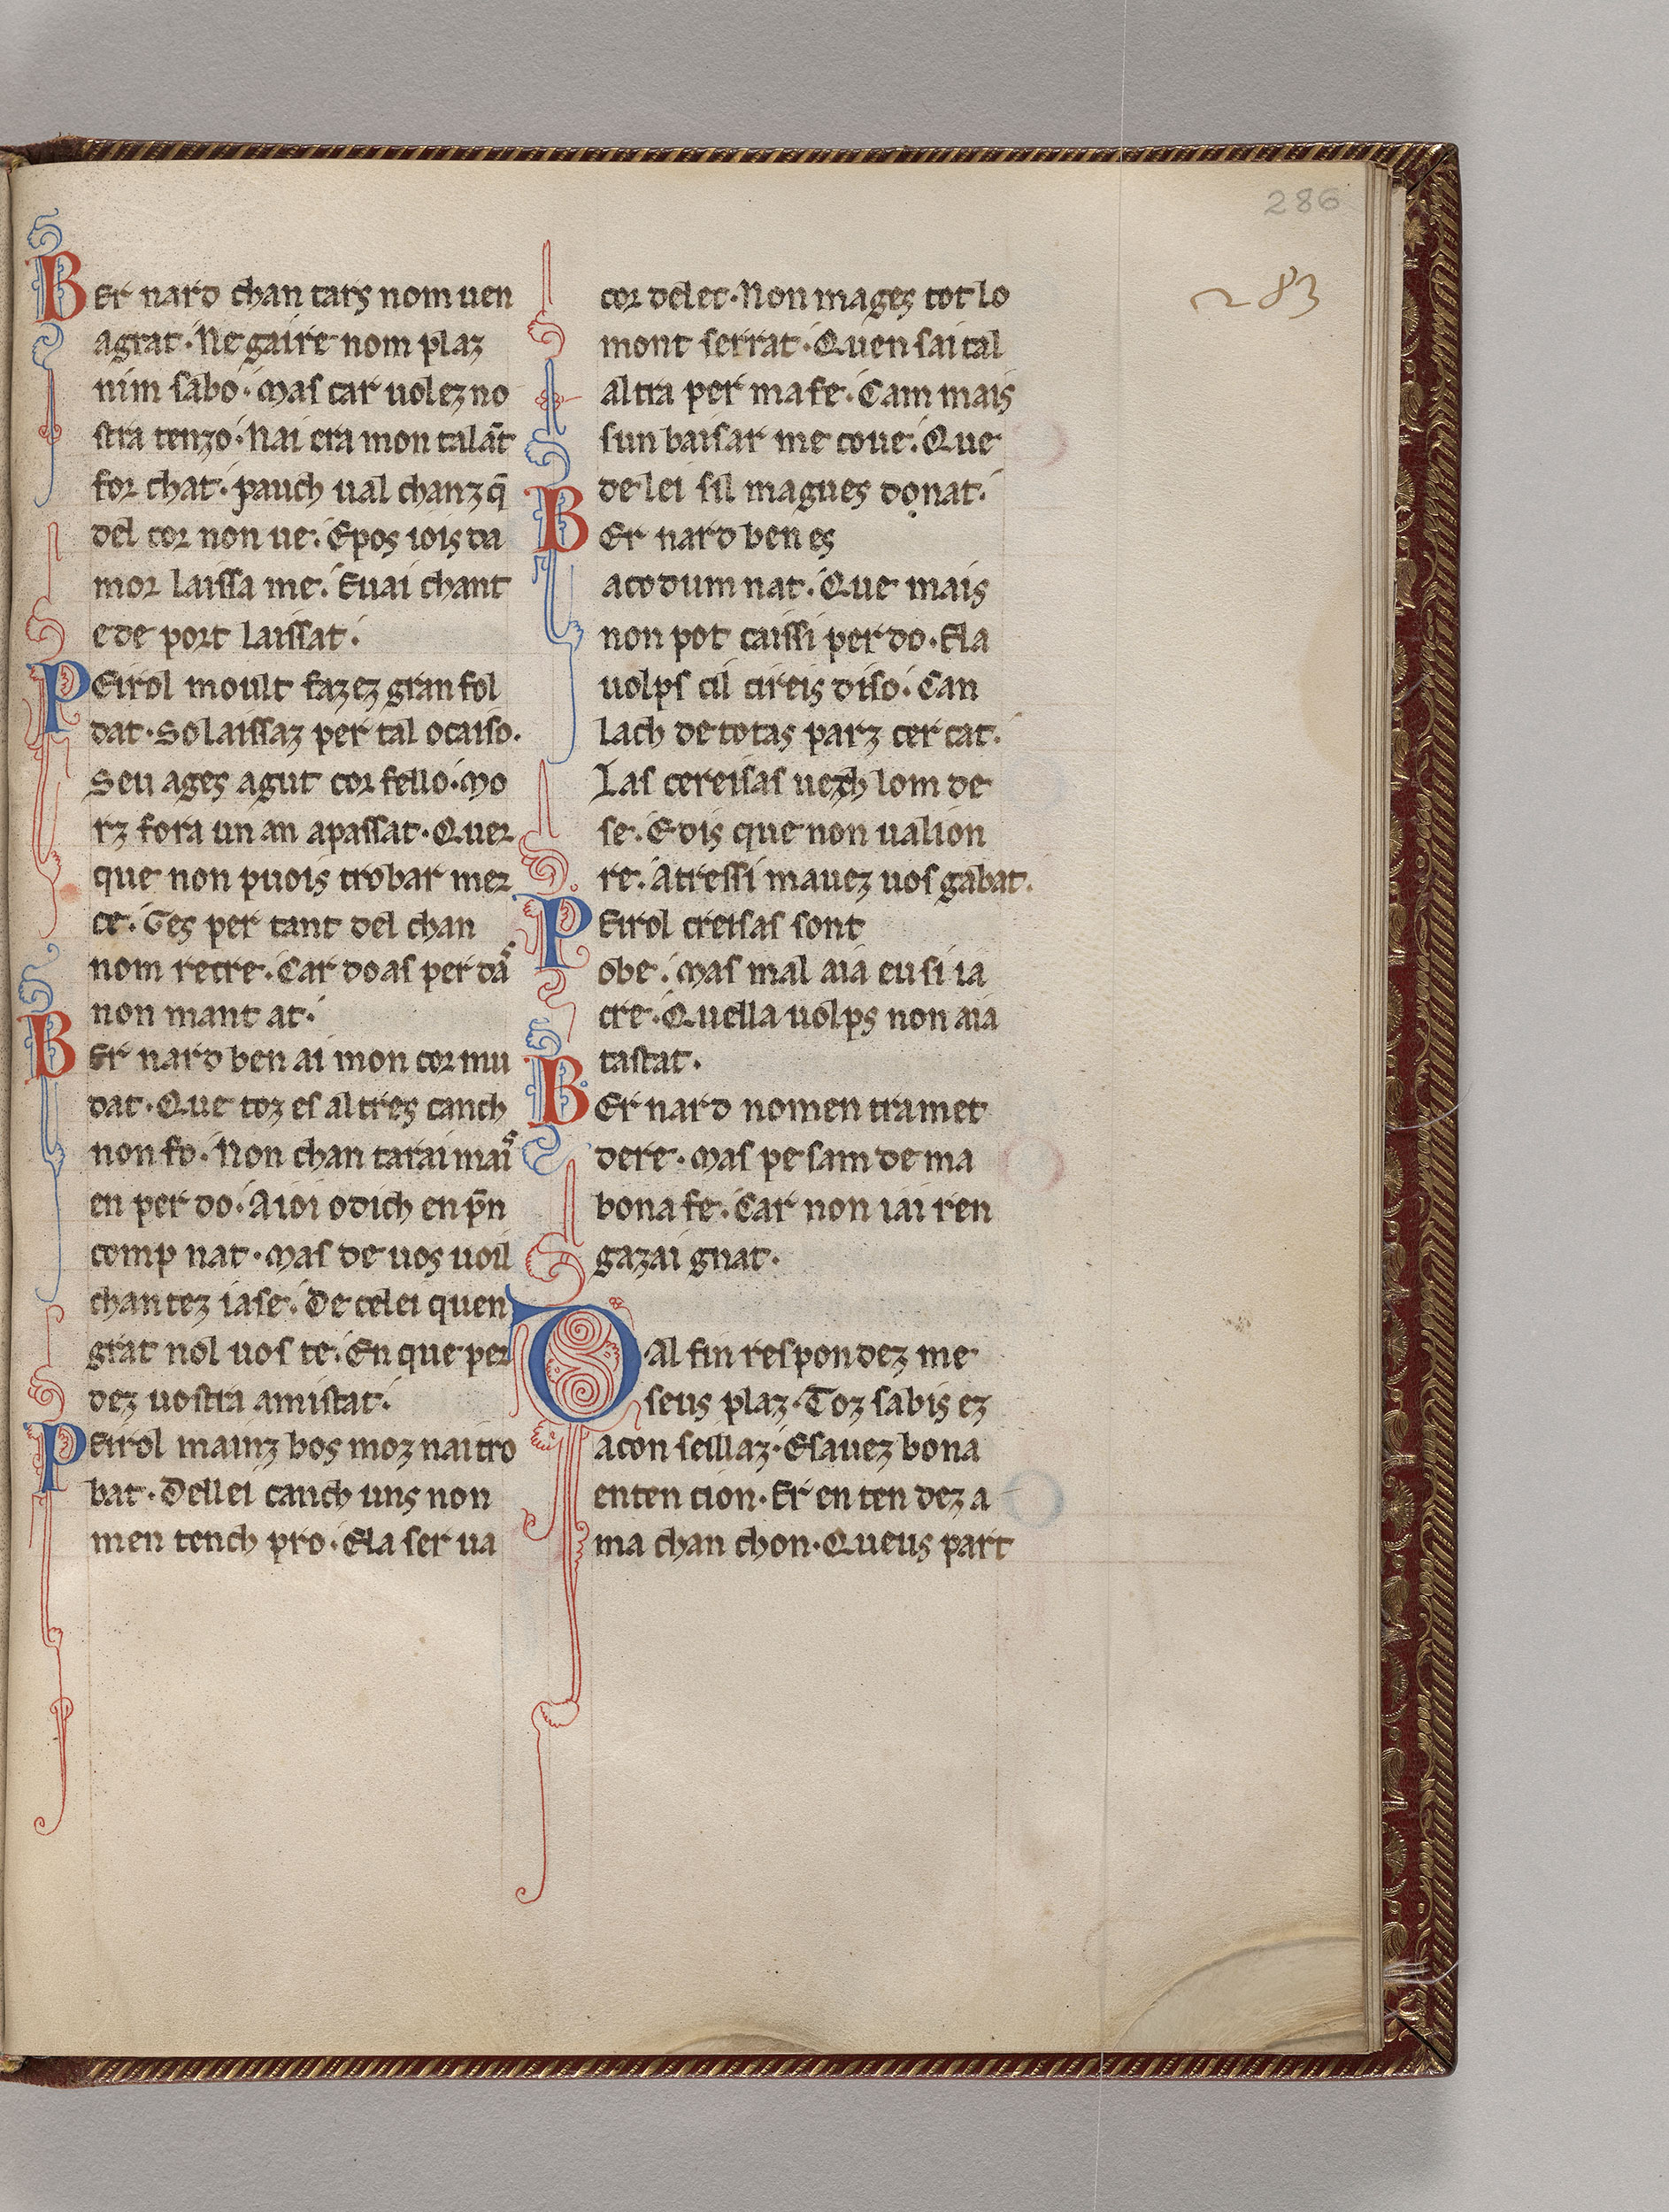 286
283
Ber nard chan tars nom uen
agrat. Ne gaire nom plaz
nim sabo. Mas car uolez no
stra tenzo. Nai era mon talāt
for chat. pauch ual chanz q̄
del cor non ue. Epos iois da
mor laissa me. Euai chant
e de port laissat.
Peirol moult fazez gran fol
dat. So laissaz per tal ocaiso.
Seu ages agut cor fello. Mo
rz fora un an apassat. Quer
que non puois trobar mer
ce. Ges per tant del chan
nom recre. Car doas per dā
non mant at.
Ber nard ben ai mon cor mu
dat. Que toz es altres canch
non fo. Non chan tarai mai
en per do. Aioi odich en p̄n
comp nat. Mas de uos uoil
chantez iase. De celei quen
grat nol uos te. En que per
dez uostra amistat.
Peirol mainz bos moz nai tro
bat. Dellei canch uns non
men tench pro. Ela ser ua
cor delet. Non mages tot lo
mont serrat. Quen sai tal
altra per ma fe. Cam mais
sun baisar me coue. Que
de lei sil magues donat.
Ber nard ben es
acodum nat. Que mais
non pot caissi per do. Ela
uolps cil cireis diso. Can
lach de totas parz cer cat.
Las cereisas uech lom de
se. Edis que non ualion
re. Atressi mauez uos gabat.
Peirol creisas sont
obe. Mas mal aia eu si ia
cre. Quella uolps non aia
tastat.
Ber nard nomen tramet
dere. Mas pe sam de ma
bona fe. Car non iai ren
gazai gnat.
Tal fin respondez me
seus plaz. Toz sabis ez
acon seillaz. Esauez bona
enten cion. Er en ten dez a
ma chan chon. Queus part